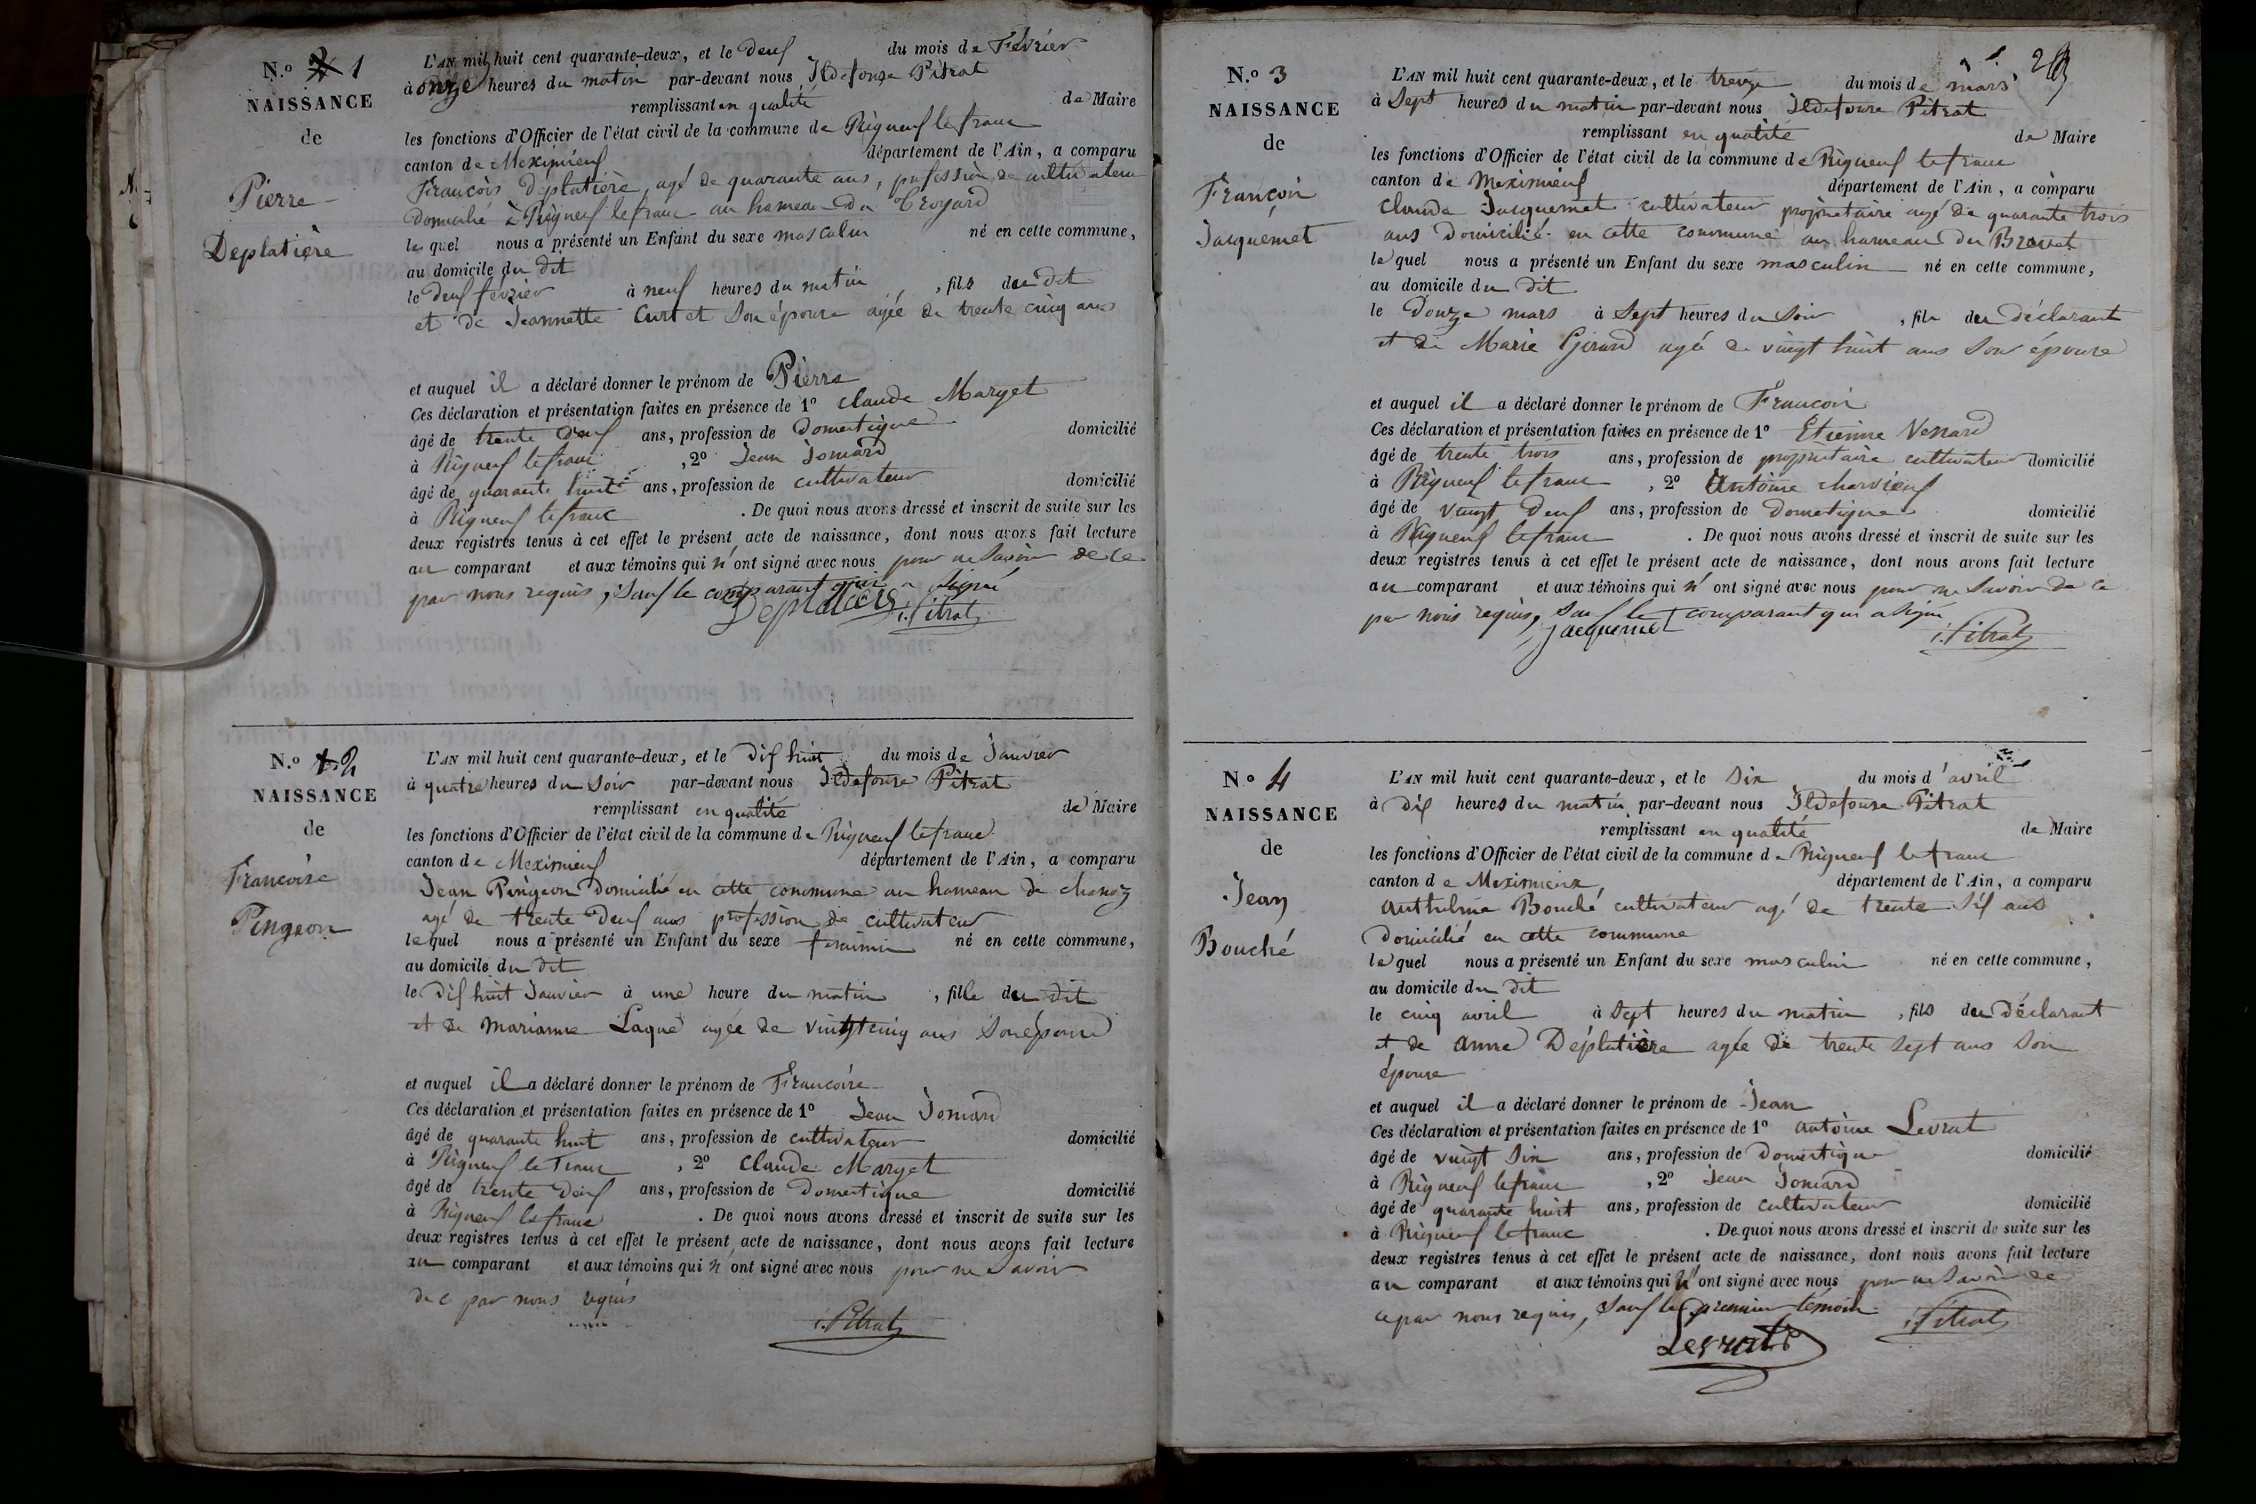 N.o 2 1
NAISSANCE
de
Pierre
Deplatière
L'AN mil huit cent quarante-deux, et le deux du mois de Février
à onze heures du matin par-devant nous Ildefonse Pitrat
remplissant en qualité de Maire
les fonctions d'Officier de l'état civil de la commune de Rigneux lefranc
canton de Meximieux département de l'Ain, a comparu
François Déplatière, agé de quarante ans, profession de cultivateur
domicilié à Rigneux lefranc au hameau du Croyard
lequel nous a présenté un Enfant du sexe masculin né en cette commune,
au domicile du dit
le deux février à neuf heures du matin, fils du dit
et de Jeannette Curtet son épouse agée de trente cinq ans
et auquel il a déclaré donner le prénom de Pierre
Ces déclaration et présentation faites en présence de 1o Claude Marget
âgé de trente deux ans, profession de Domestique domicilié
à Rigneux lefranc, 2o Jean Jomard
âgé de quarante huit ans, profession de cultivateur domicilié
à Rigneux lefranc. De quoi nous avons dressé et inscrit de suite sur les
deux registres tenus à cet effet le présent acte de naissance, dont nous avons fait lecture
au comparant et aux témoins qui n'ont signé avec nous pour ne savoir de ce
par nous requis, sauf le comparant qui a signé
i. Pitrat
N.o 1 2
NAISSANCE
de
Francoise
Pingeon
L'AN mil huit cent quarante-deux, et le dix huit du mois de Janvier
à quatre heures du soir par-devant nous Ildefonse Pitrat
remplissant en qualité de Maire
les fonctions d'Officier de l'état civil de la commune de Rigneux lefranc
canton de Meximieux département de l'Ain, a comparu
Jean Pingeon domicilié en cette commune au hameau de chanoz
agé de trente deux ans profession de cultivateur
lequel nous a présenté un Enfant du sexe féminin né en cette commune,
au domicile du dit
le dix huit Janvier à une heure du matin, fille du dit
et de Marianne Laque agée de vingt cinq ans son épouse
et auquel il a déclaré donner le prénom de Francoise
Ces déclaration et présentation faites en présence de 1o Jean Jomard
âgé de quarante huit ans, profession de cultivateur domicilié
à Rigneux le franc, 2o Claude Marget
âgé de trente deux ans, profession de Domestique domicilié
à Rigneux lefranc. De quoi nous avons dressé et inscrit de suite sur les
deux registres tenus à cet effet le présent acte de naissance, dont nous avons fait lecture
au comparant et aux témoins qui n'ont signé avec nous pour ne savoir
de c par nous requis
i. Pitrat
2
N.o 3
NAISSANCE
de
François
Jacquemet
L'AN mil huit cent quarante-deux, et le treize du mois de mars
à Sept heures du matin par-devant nous Ildefonse Pitrat
remplissant en qualité de Maire
les fonctions d'Officier de l'état civil de la commune de Rigneux lefranc
canton de Meximieux département de l'Ain, a comparu
Claude Jacquemet cultivateur propriétaire agé de quarante trois
ans domicilié en cette commune au hameau du Breuet
lequel nous a présenté un Enfant du sexe masculin né en cette commune,
au domicile du dit
le Douze mars à Sept heures du soir, fils du déclarant
et de Marie Girard agée de vingt huit ans son épouse
et auquel il a déclaré donner le prénom de François
Ces déclaration et présentation faites en présence de 1o Etienne Venard
âgé de trente trois ans, profession de propriétaire cultivateur domicilié
à Rigneux lefranc, 2o Antoine charvieux
âgé de vingt deux ans, profession de domestique domicilié
à Rigneux lefranc. De quoi nous avons dressé et inscrit de suite sur les
deux registres tenus à cet effet le présent acte de naissance, dont nous avons fait lecture
au comparant et aux témoins qui n'ont signé avec nous pour ne savoir de ce
par nous requis, sauf le comparant qui a signé
Jacquemet i. Pitrat
No 4
NAISSANCE
de
Jean
Bouché
L'AN mil huit cent quarante-deux, et le six du mois d'avril
à dix heures du matin par-devant nous Ildefonse Pitrat
remplissant en qualité de Maire
les fonctions d'Officier de l'état civil de la commune de Rigneux lefranc
canton de Meximieux, département de l'Ain, a comparu
Anthelme Bouché cultivateur agé de trente six ans
domicilié en cette commune
lequel nous a présenté un Enfant du sexe masculin né en cette commune,
au domicile du dit
le cinq avril à sept heures du matin, fils du déclarant
et de anne Déplatière agée de trente sept ans son
épouse
et auquel il a déclaré donner le prénom de Jean
Ces déclaration et présentation faites en présence de 1o antoine Levrat
âgé de vingt six ans, profession de Domestique domicilié
à Rigneux lefranc, 2o Jean Jomard
âgé de quarante huit ans, profession de cultivateur domicilié
à Rigneux lefranc. De quoi nous avons dressé et inscrit de suite sur les
deux registres tenus à cet effet le présent acte de naissance, dont nous avons fait lecture
au comparant et aux témoins qui n'ont signé avec nous pour ne savoir de
ce par nous requis, sauf le premier témoin
Levrat i. Pitrat